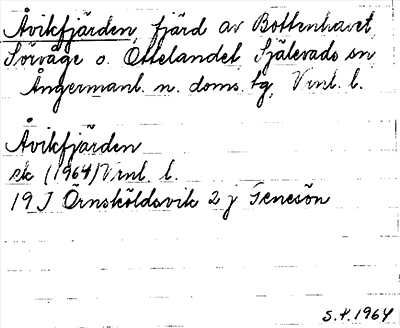 Åvikfjärden, fjärd av Bottenhavet,
Sörvåge o. Ottelandet, Själevads sn
Ångermanl. n. doms. tg, Vrnl. l.
Åvikfjärden
ek (1964) Vrnl. l.
19 J Örnsköldsvik 2 j Genesön
S.F. 1964